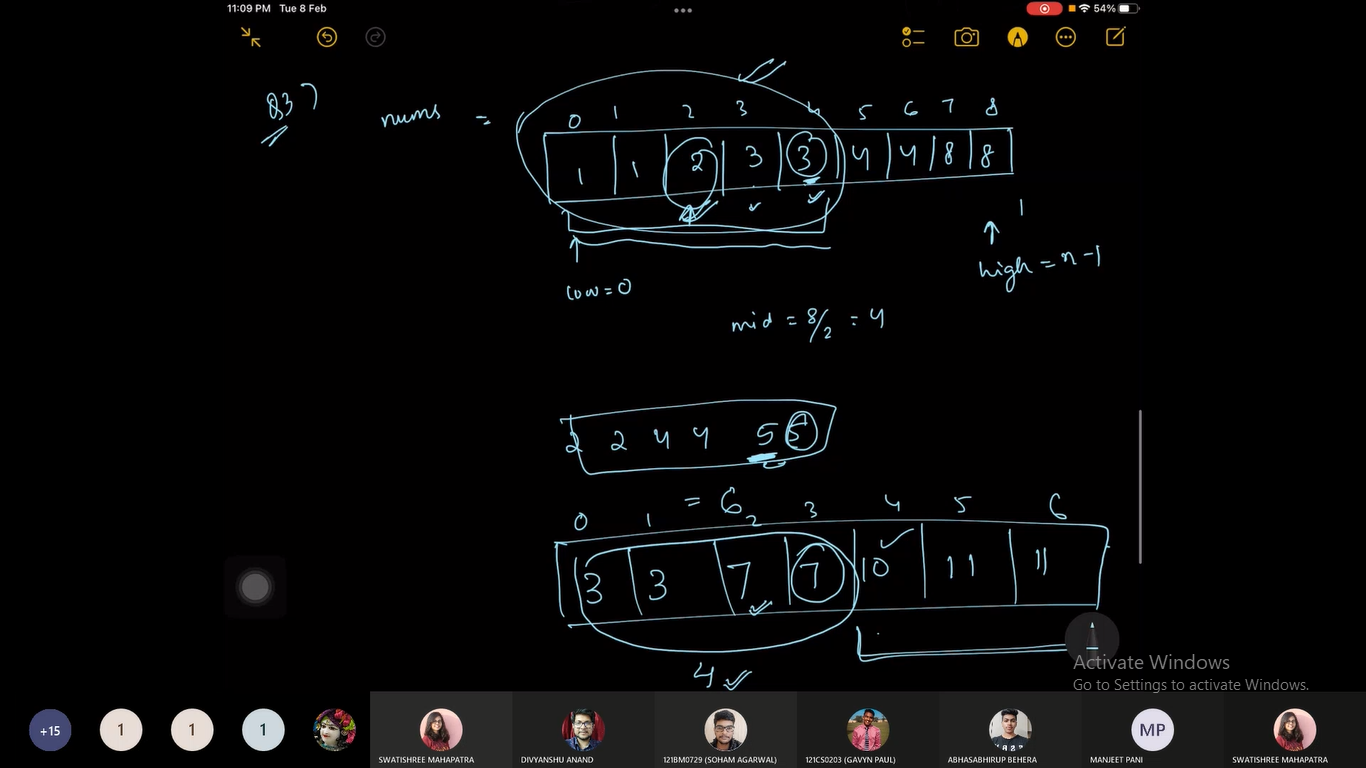 11:09 PM Tue 8 Feb
54%
Q3)
nums =
0 1 2 3 4 5 6 7 8
1 1 2 3 3 4 4 8 8
1
high = n-1
low = 0
mid = 8/2 = 4
2 2 4 4 5 5
= 6
0 1 2 3 4 5 6
3 3 7 7 10 11 11
4
Activate Windows
Go to Settings to activate Windows.
+15
1
1
1
MP
SWATISHREE MAHAPATRA
DIVYANSHU ANAND
121BM0729 (SOHAM AGARWAL)
121CS0203 (GAVYN PAUL)
ABHASABHIRUP BEHERA
MANJEET PANI
SWATISHREE MAHAPATRA